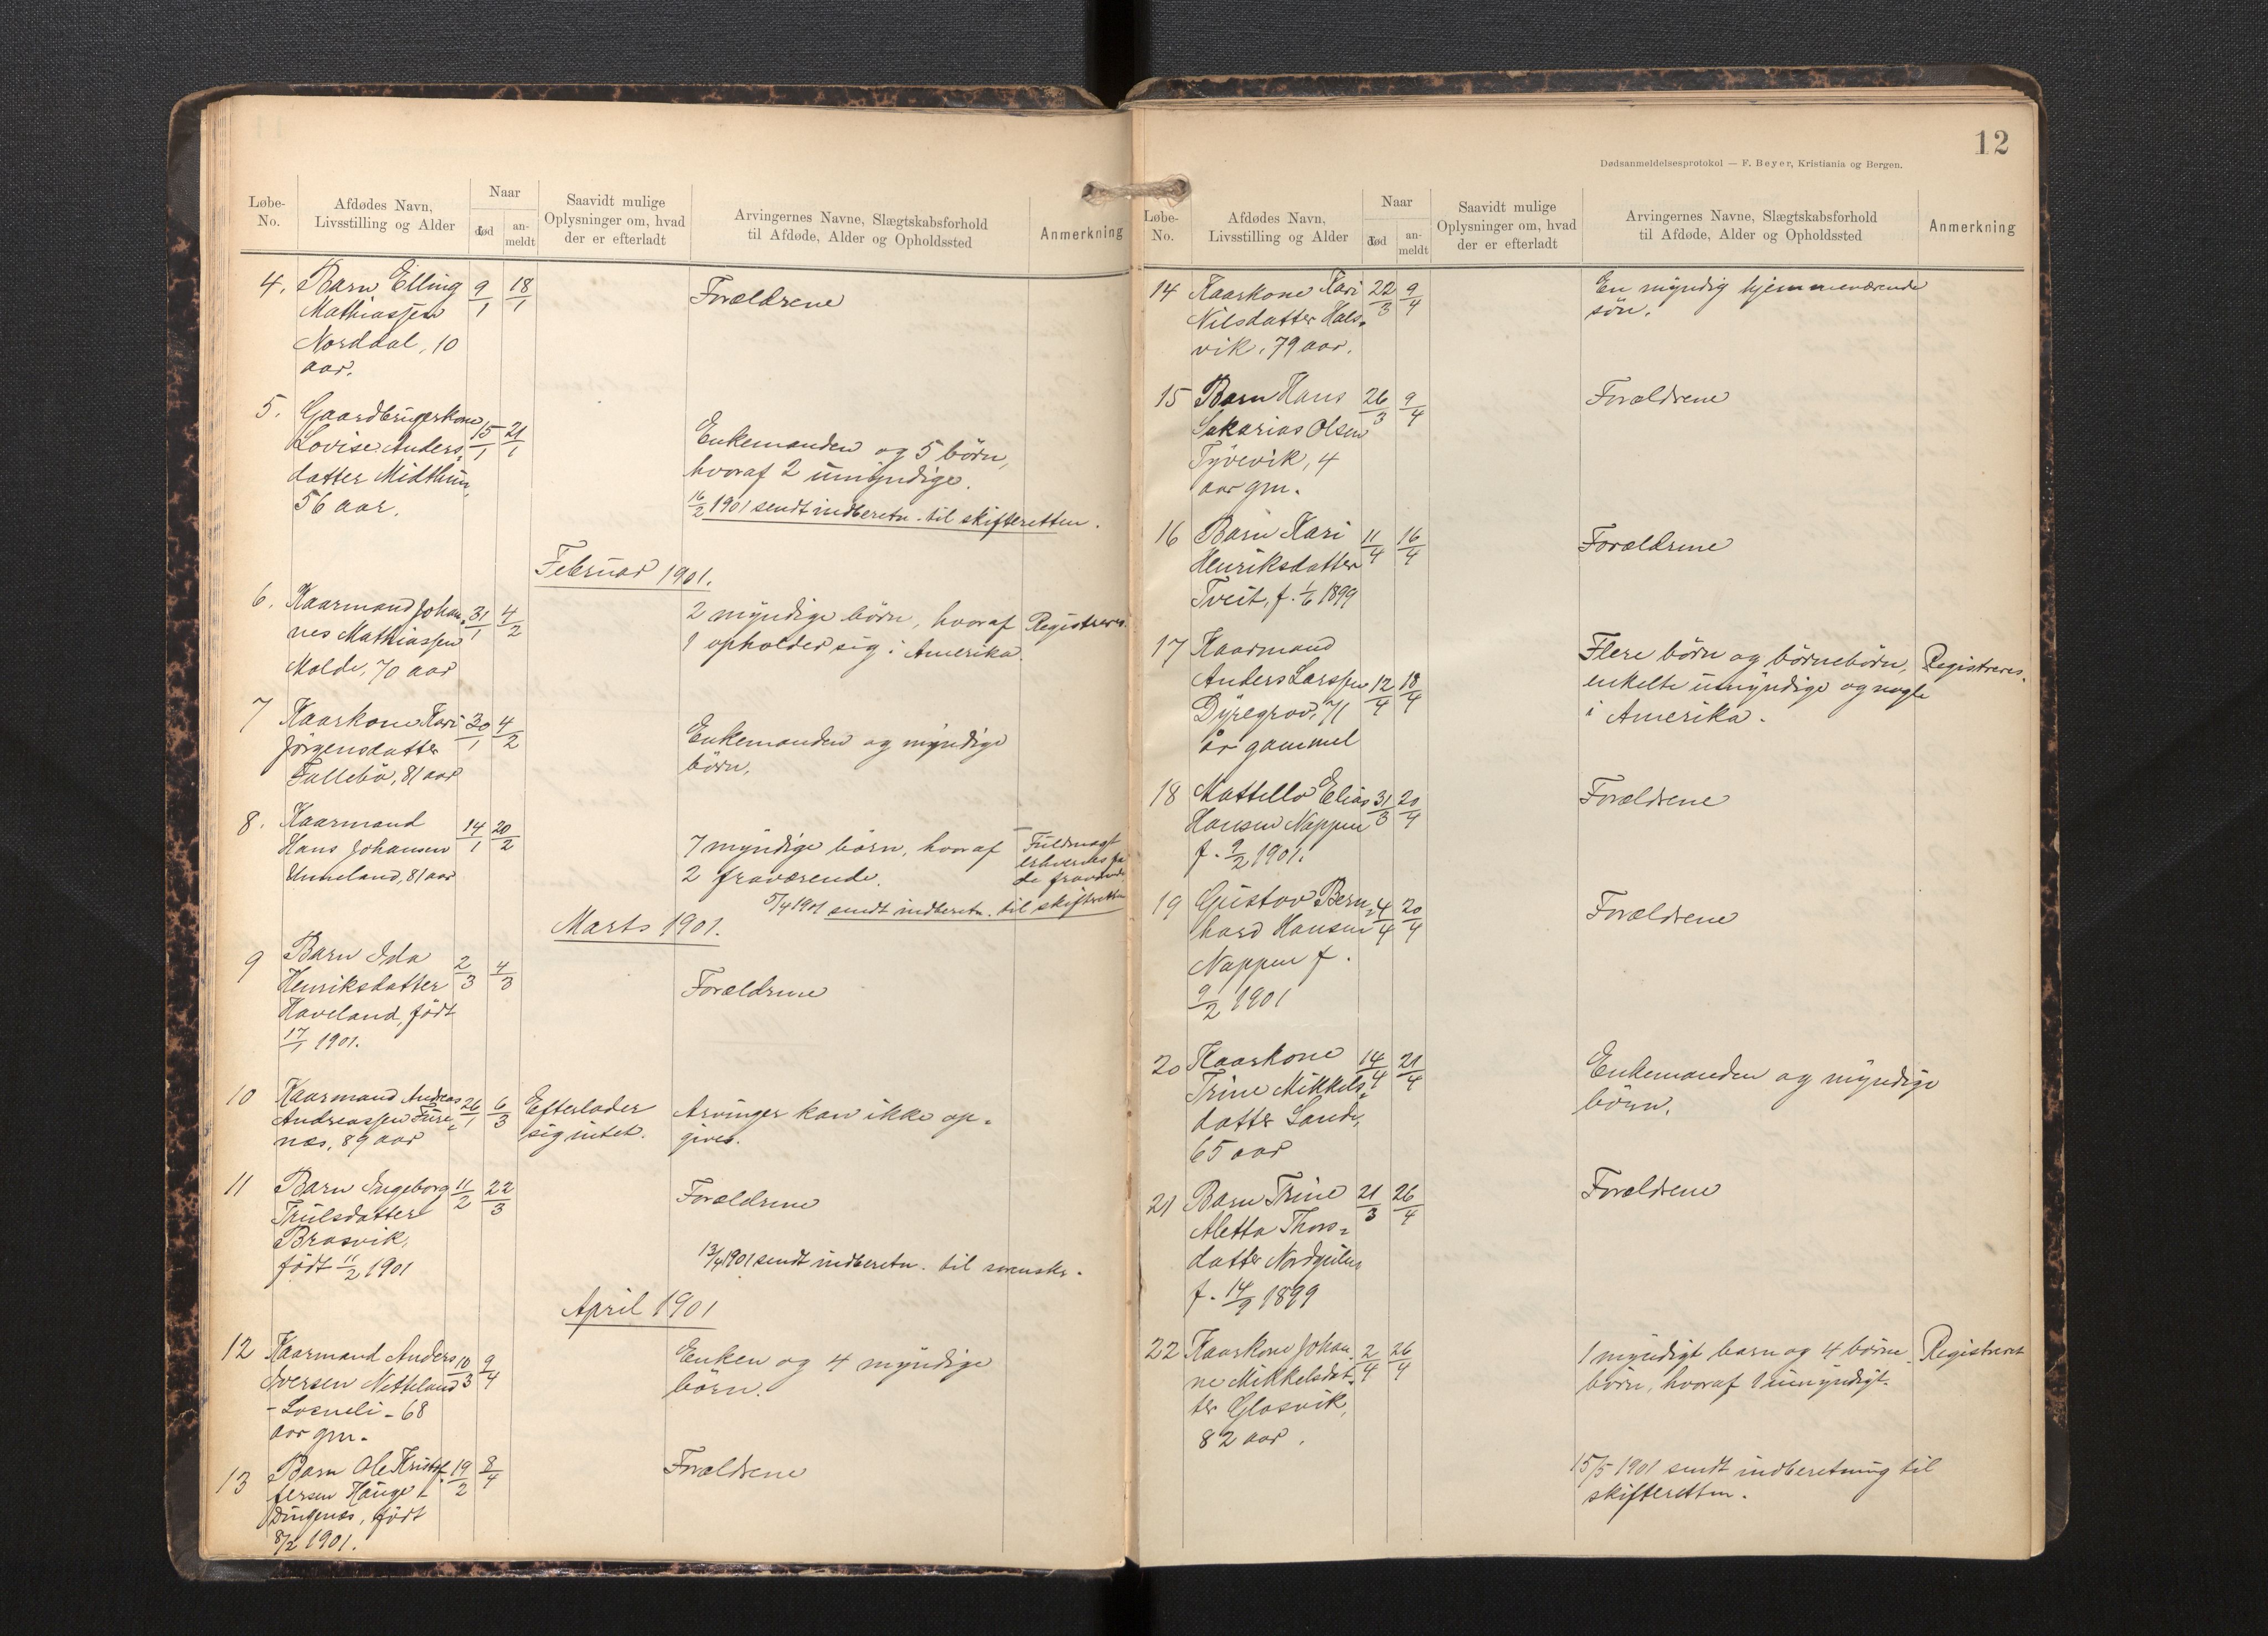 Løbe-
No.
Afdødes Navn,
Livsstilling og Alder
Naar
død
an-
meldt
Saavidt mulige
Oplysninger om, hvad
der er efterladt
Arvingernes Navne, Slægtskabsforhold
til Afdøde, Alder og Opholdssted
Anmerkning
4. Barn Elling 9/1 18/1
Mathiassen
Norddal, 10
aar.
Forældrene
5. Gaardbrugerkone
Lovise Anders- 15/1 21/1
datter Midthun,
56 aar.
Enkemanden og 5 børn,
hvoraf 2 umyndige.
16/2 1901 sendt indberetn. til skifteretten.
Februar 1901.
6. Kaarmand Johan- 31/1 4/2
nes Mathiassen
Molde, 70 aar
2 myndige børn, hvoraf
1 opholder sig i Amerika.
Registreres.
7 Kaarkone Kari 30/1 4/2
Jörgensdatter
Tullebö, 81 aar
Enkemanden og myndige
børn.
8. Kaarmand 14/1 20/2
Hans Johansen
Unneland, 81 aar
7 myndige børn, hvoraf
2 fraværende.
Fuldmagt
erhverves fra
de fraværende
5/4 1901 sendt indberetn. til skifteretten
Marts 1901.
9 Barn Ida 2/3 4/3
Henriksdatter
Haveland, født
17/1 1901.
Forældrene
10 Kaarmand Andreas 26/1 6/3
Andreassen Fure-
næs, 89 aar
Efterlader
sig intet.
Arvinger kan ikke op-
gives.
11 Barn Ingeborg 11/2 22/3
Trulsdatter
Brosvik,
født 11/2 1901
Forældrene
13/4 1901 sendt indberetn. til sorensks.
April 1901
12 Kaarmand Anders 10/3 9/4
Iversen Netteland
- Losneli - 68
aar gm.
Enken og 4 myndige
børn.
13 Barn Ole Kristof- 19/2 8/4
fersen Hauge
Dingenæs, født
8/2 1901.
Forældrene
12
Dødsanmeldelsesprotokol — F. Beyer, Kristiania og Bergen.
Løbe-
No.
Afdødes Navn,
Livsstilling og Alder
Naar
død
an-
meldt
Saavidt mulige
Oplysninger om, hvad
der er efterladt
Arvingernes Navne, Slægtskabsforhold
til Afdøde, Alder og Opholdssted
Anmerkning
14 Kaarkone Kari 22/3 9/4
Nilsdatter Hals-
vik, 79 aar.
En myndig hjemmeværende
søn.
15 Barn Hans 26/3 9/4
Sakarias Olsen
Tyvevik, 4
aar gm.
Forældrene
16 Barn Kari 11/4 16/4
Henriksdatter
Tveit, f. 1/6 1899
Forældrene
17 Kaarmand
Anders Larssen 12/4 18/4
Dyregrov, 71
år gammel
Flere børn og børnebørn,
enkelte umyndige og nogle
i Amerika.
Registreres.
18 Mattello Elias 31/3 20/4
Hansen Nappen
f. 9/2 1901.
Forældrene
19 Gustav Bern- 4/4 20/4
hard Hansen
Nappen f.
9/2 1901
Forældrene
20 Kaarkone 14/4 21/4
Trine Mikkels-
datter Sande,
65 aar
Enkemanden og myndige
børn.
21 Barn Trine 21/3 26/4
Aletta Thors-
datter Nordgulen
f. 14/9 1899
Forældrene
22 Kaarkone Johan- 2/4 26/4
ne Mikkelsdat-
ter Glosvik,
82 aar.
1 myndigt barn og 4 børne-
børn, hvoraf 1 umyndigt.
Registreret
15/5 1901 sendt indberetning til
skifteretten.